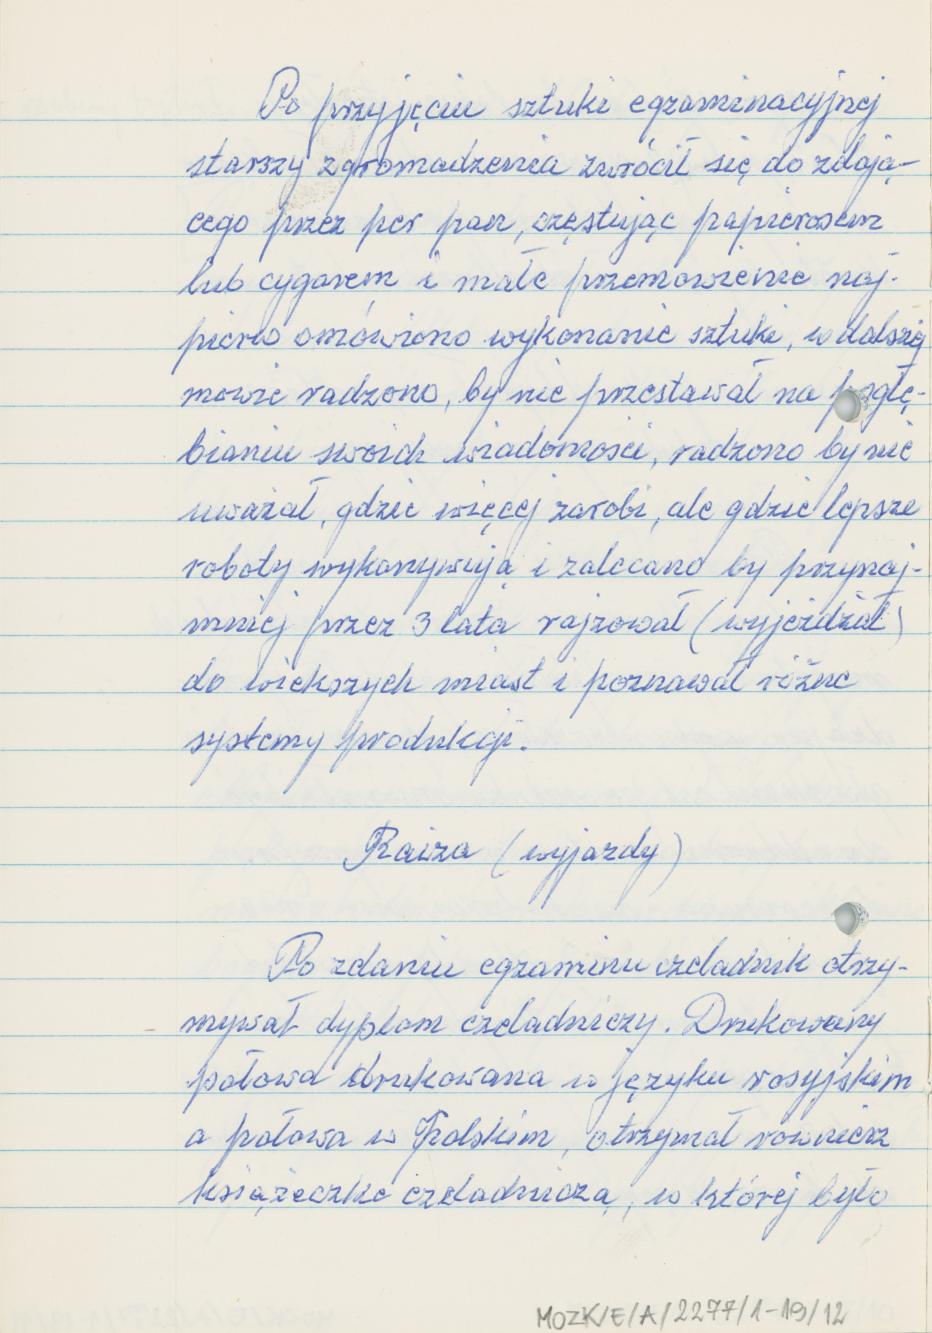 Po przyjęciu sztuki egzaminacyjnej
starszy zgromadzenia zwrócił się do zdają-
cego przez per pan, częstując papierosem
lub cygarem i małe przemowienie naj-
pierw omówiono wykonanie sztuki, w dalszej
mowie radzono, by nie przestawał na pogłę-
bianiu swoich wiadomości, radzono by nie
uważał, gdzie więcej zarobi, ale gdzie lepsze
roboty wykonywują i zalecano by przynaj-
mniej przez 3 lata rajzował (wyjeżdżał)
do wiekszych miast i poznawał różne
systemy produkcji.
Raiza (wyjazdy)
Po zdaniu egzaminu czeladnik otrzy-
mywał dyplom czeladniczy. Drukowany
połowa drukowana w języku rosyjskim
a połowa w Polskim, otrzymał rownierz
książeczke czeladniczą, w której było
MOZK/E/A/2277/1-19/12